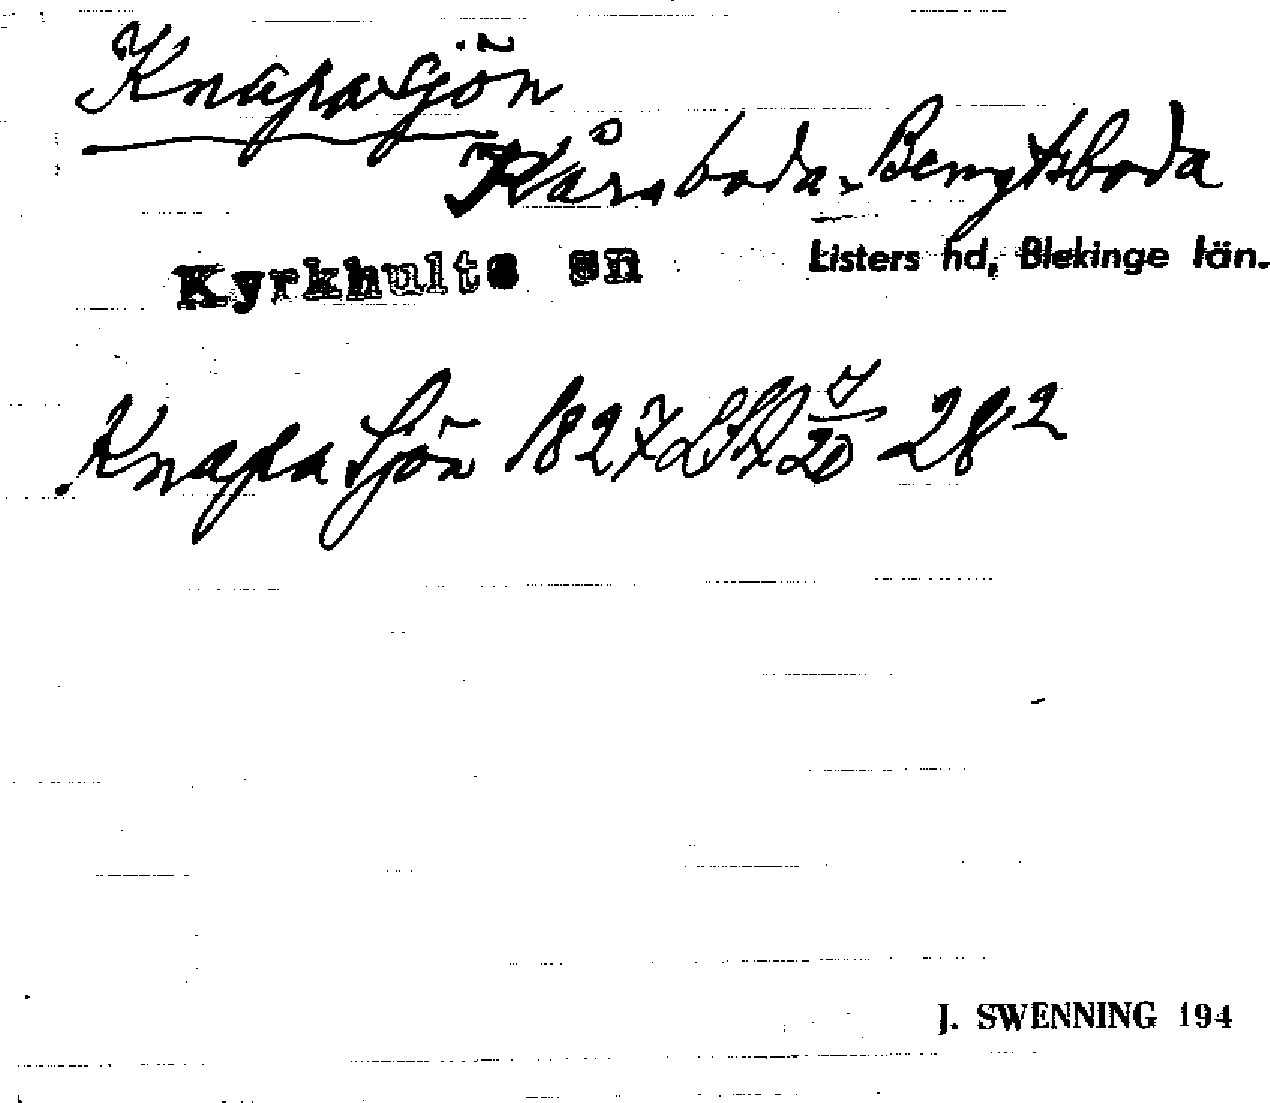 Knapasjön
Kåraboda, Bengtsboda
Kyrkhults sn Listers hd, Blekinge län.
Knapa Sjön 1827 LSA 7/20 28²
J. SWENNING 194